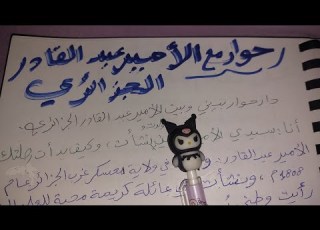 حوار مع الأمير عبد القادر
الجزائري
دار حوار بيني وبين الأمير عبد القادر الجزائري.
أنا: سيدي الأمير نشأت، وكيف بدأت
الأمير عبد القادر: في ولاية معسكر غرب الجزائر عام
1808م، ونشأت في عائلة كريمة محبة للعلم
رأيت وطني